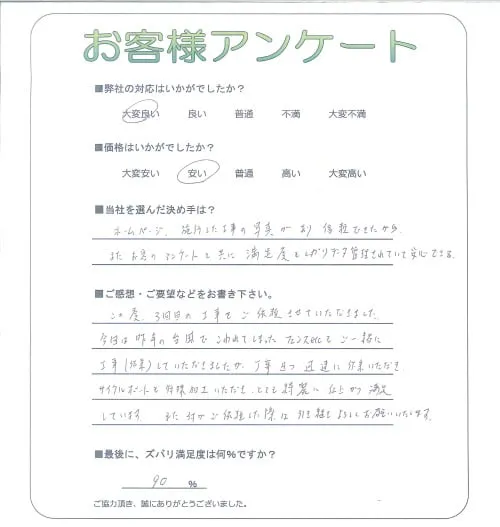 お客様アンケート
■弊社の対応はいかがでしたか？
大変良い 良い 普通 不満 大変不満
■価格はいかがでしたか？
大変安い 安い 普通 高い 大変高い
■当社を選んだ決め手は？
ホームページ、施行した工事の写真があり 信頼できたから。
またお客のアンケートと共に 満足度としっかりデータ管理されていて安心できる。
■ご感想・ご要望などをお書き下さい。
この度、3回目の工事をご依頼させていただきました。
今回は昨年の台風でこわれてしまった をご一緒に
工事(作業)していただきましたが、丁寧且つ迅速に作業いただき
サイクルポートも 加工いただき、とても綺麗に仕上がり満足
しています。 また何かご依頼した際は 引き続きよろしくお願いいたします。
■最後に、ズバリ満足度は何％ですか？
90 ％
ご協力頂き、誠にありがとうございました。